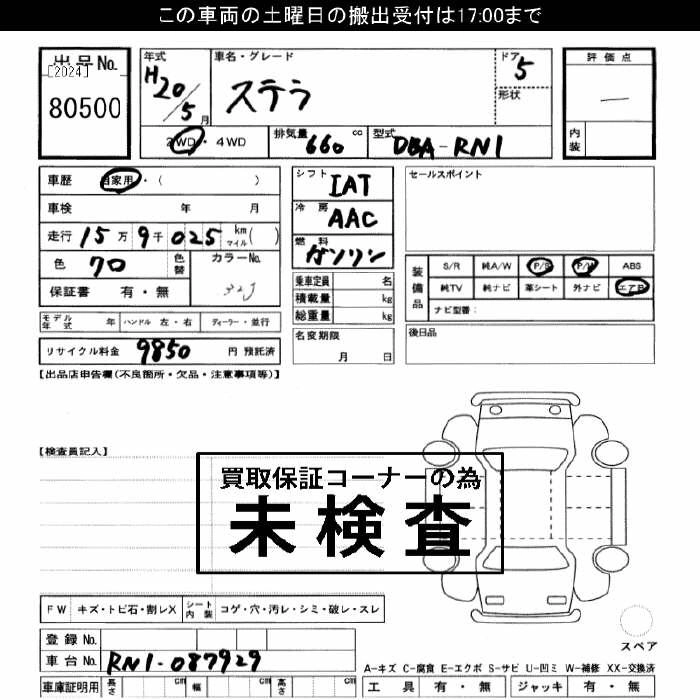 この車両の土曜日の搬出受付は17:00まで
出品No.
[2024]
80500
年式 H20/5月
車名・グレード
ステラ
ドア 5
形状
評価点
—
内装
2WD・4WD
排気量 660 cc
型式 DBA-RN1
車歴 自家用・( )
車検 年 月
走行 15万9千025 km マイル( )
色 クロ 色替 カラーNo. 32J
保証書 有・無
シフト IAT
冷房 AAC
燃料 ガソリン
乗車定員 名
積載量 kg
総重量 kg
セールスポイント
装備品
S/R 純A/W P/S P/W ABS
純TV 純ナビ 革シート 外ナビ エアB
ナビ型番:
モデル年式 年 ハンドル 左・右 ディーラー・並行
名変期限
月 日
後日品
リサイクル料金 9850 円 預託済
【出品店申告欄(不良箇所・欠品・注意事項等)】
【検査員記入】
買取保証コーナーの為
未検査
FW キズ・トビ石・割レX シート内装 コゲ・穴・汚レ・シミ・破レ・スレ
登録No.
車台No. RN1-087929
スペア
A-キズ C-腐食 E-エクボ S-サビ U-凹ミ W-補修 XX-交換済
車庫証明用 長さ cm 幅 cm 高さ cm
工具 有・無 ジャッキ 有・無